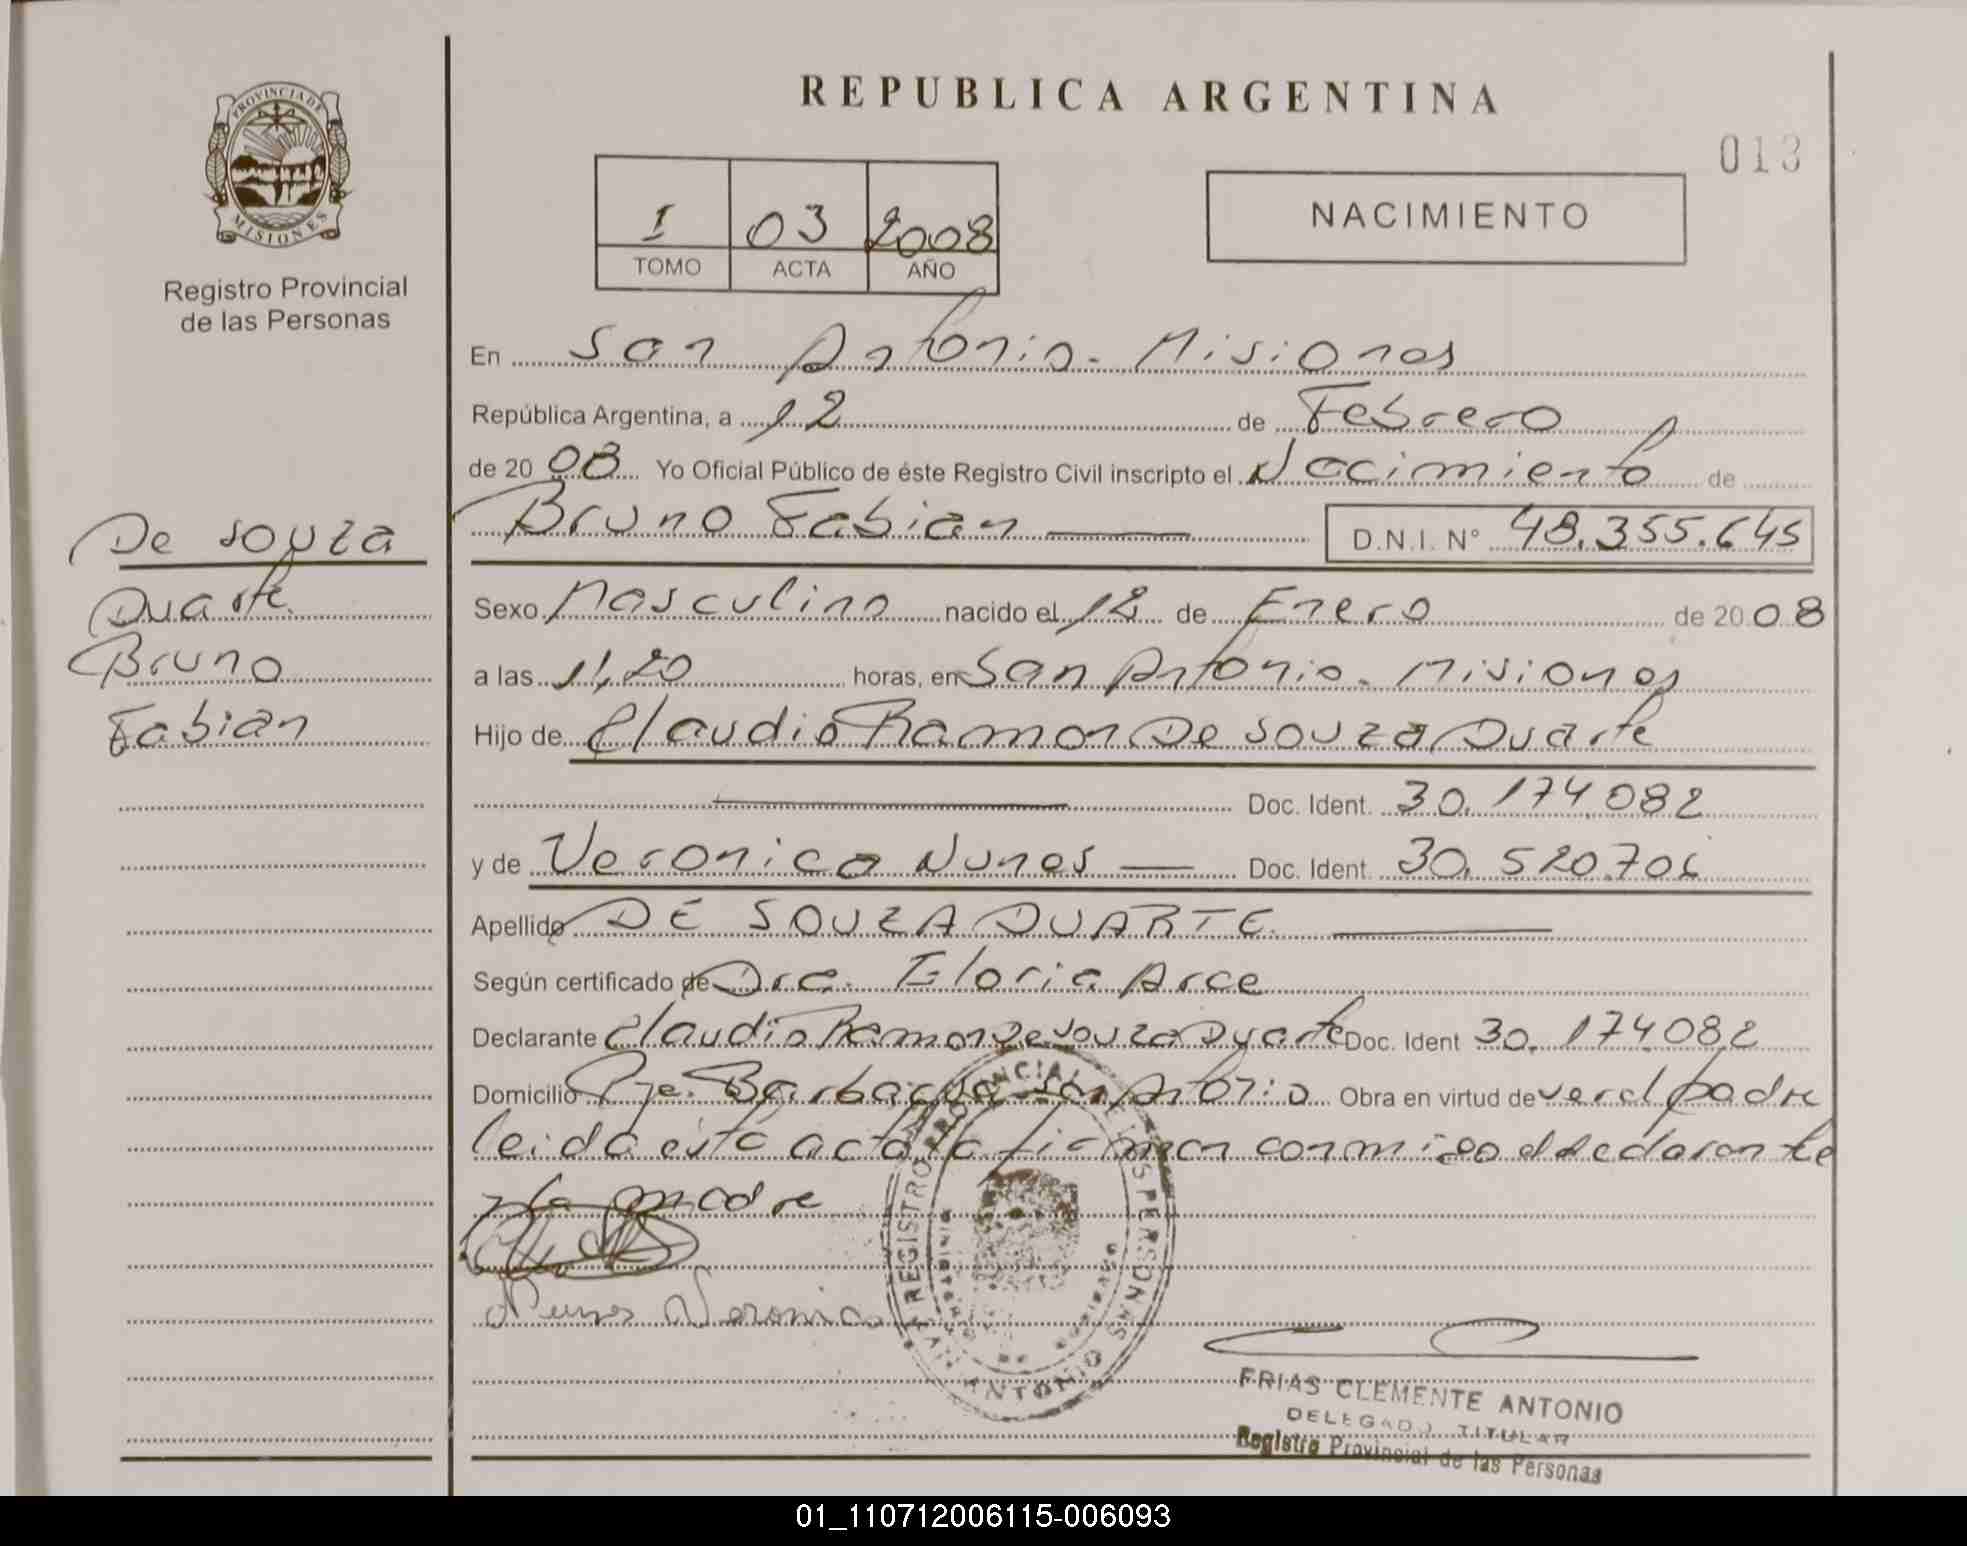 REPUBLICA ARGENTINA
013
PROVINCIA DE
MISIONES
Registro Provincial
de las Personas
I 03 2008
TOMO ACTA AÑO
NACIMIENTO
En San Antonio - Misiones
República Argentina, a 12 de Febrero
de 20 08 Yo Oficial Público de éste Registro Civil inscripto el Nacimiento de
Bruno Fabian D.N.I. N° 48.355.645
De souza
Duarte
Bruno
Fabian
Sexo Masculino nacido el 12 de Enero de 20 08
a las 11,20 horas, en San Antonio - Misiones
Hijo de Claudio Ramon De souza Duarte
Doc. Ident. 30.174.082
y de Veronica Nunes Doc. Ident. 30.520.706
Apellido DE SOUZA DUARTE
Según certificado de Dra. Gloria Arce
Declarante Claudio Ramon De souza Duarte Doc. Ident 30.174.082
Domicilio Pje. San Antonio Obra en virtud de ser el padre
leida esta acta la firman conmigo el declarante
y la madre
Nunes Veronica
REGISTRO PROVINCIAL DE LAS PERSONAS
SAN ANTONIO
FRIAS CLEMENTE ANTONIO
DELEGADO TITULAR
Registro Provincial de las Personas
01_110712006115-006093